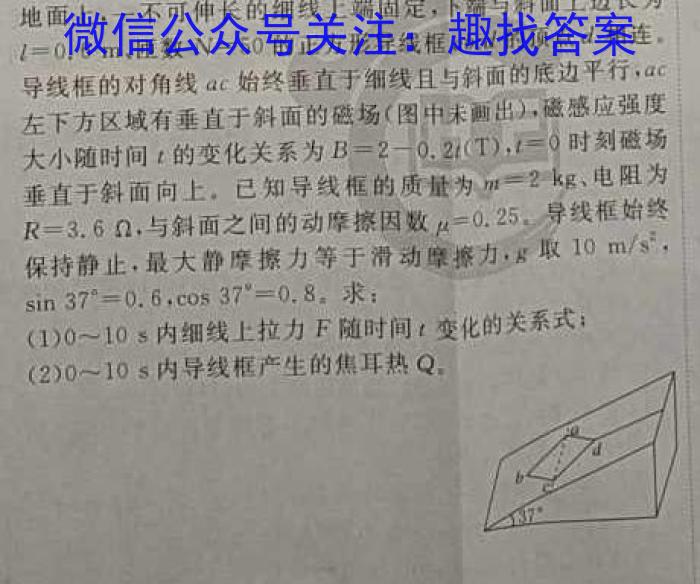 地面上,一不可伸长的细线上端固定,下端与斜面上边长为
微信公众号关注:趣找答案
l=0. 连。
导线框的对角线 ac 始终垂直于细线且与斜面的底边平行,ac
左下方区域有垂直于斜面的磁场(图中未画出),磁感应强度
大小随时间 t 的变化关系为 B=2-0.2t(T),t=0 时刻磁场
垂直于斜面向上。已知导线框的质量为 m=2 kg、电阻为
R=3.6 Ω,与斜面之间的动摩擦因数 μ=0.25。导线框始终
保持静止,最大静摩擦力等于滑动摩擦力,g 取 10 m/s²,
sin 37°=0.6,cos 37°=0.8。求:
(1)0~10 s 内细线上拉力 F 随时间 t 变化的关系式;
(2)0~10 s 内导线框产生的焦耳热 Q。
a
d
b
c
37°